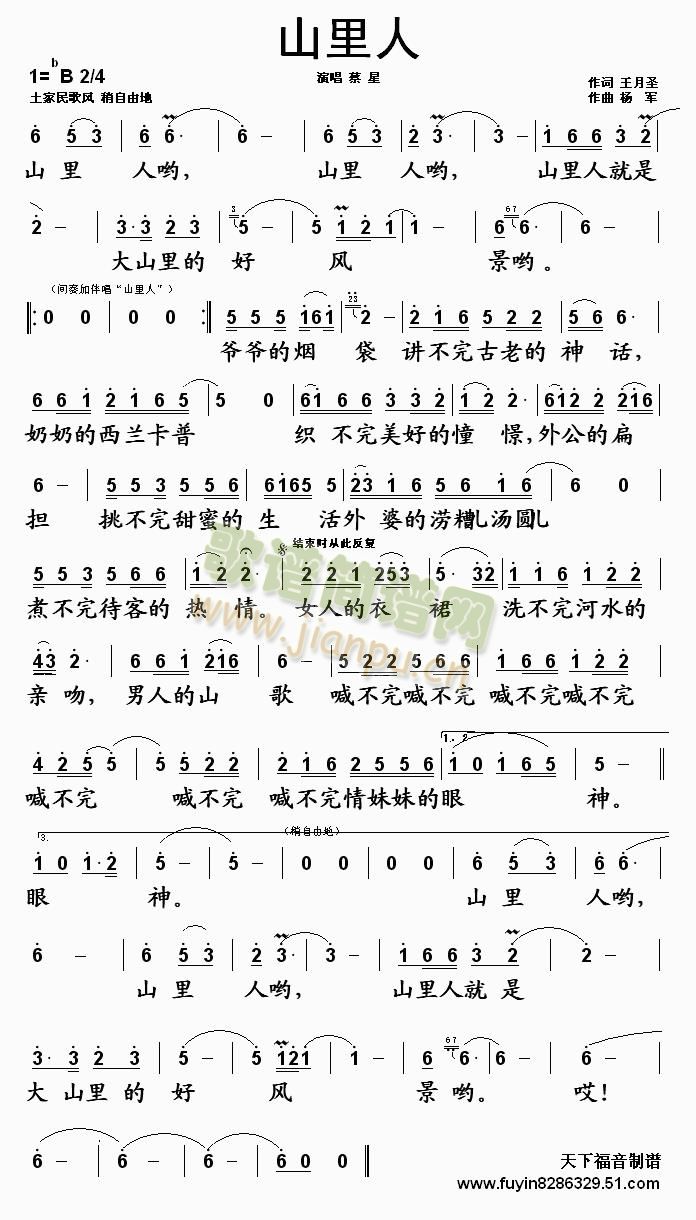 山里人
1= ♭B 2/4
演唱 蔡 星
作词 王月圣
土家民歌风 稍自由地
作曲 杨 军
6 5 3 | 6 6· | 6 - | 6 5 3 | 2 3· | 3 - | 1 6 6 3 2 |
山 里 人哟, 山里 人哟, 山里人就是
2 - | 3· 3 2 3 | 3 5 - | 5 1 2 1 | 1 - | 6 67 6· | 6 - |
大山里的 好 风 景哟。
(间奏加伴唱“山里人”)
‖: 0 0 | 0 0 :‖ 5 5 5 161 | 23 2 - | 2 1 6 5 2 2 | 5 1 6· |
爷爷的烟 袋 讲不完古老的 神 话,
6 6 1 2 1 6 5 | 5 0 | 61 6 6 3 3 2 | 1 2 2· | 612 2 216 |
奶奶的西兰卡普 织 不完美好的憧 憬,外公的扁
6 - | 5 5 3 5 5 6 | 6165 5 | 23 1 6 5 6 1 6 | 6 0 |
担 挑不完甜蜜的 生 活外 婆的涝糟儿汤圆儿
结束时从此反复
5 5 3 5 6 6 | 1 2 2· | 2 2 1 253 | 5· 32 | 1 1 6 1 2 2 |
煮不完待客的 热 情。 女人的衣 裙 洗不完河水的
43 2· | 6 6 1 216 | 6 - | 5 2 2 5 2 2 | 1 2 2 5 2 2 |
亲 吻, 男人的山 歌 喊不完喊不完 喊不完喊不完
1. 2.
4 2 5 5 | 5 5 2 2 | 2 1 6 2 5 5 6 | 1 0 1 6 5 | 5 - |
喊不完 喊不完 喊不完情妹妹的眼 神。
3.
(稍自由地)
1 0 1· 2 | 5 - | 5 - | 0 0 | 0 0 | 6 5 3 | 6 6· |
眼 神。 山 里 人哟,
6 - | 6 5 3 | 2 3· | 3 - | 1 6 6 3 2 | 2 - |
山 里 人哟, 山里人就 是
3· 3 2 3 | 5 - | 5 121 | 1 - | 6 67 6· | 6 - | 6 - |
大 山里 的 好 风 景 哟。 哎!
6 - | 6 - | 6 - | 6 0 0 ‖
天下福音制谱
www.fuyin8286329.51.com
歌谱简谱网
www.jianpu.cn